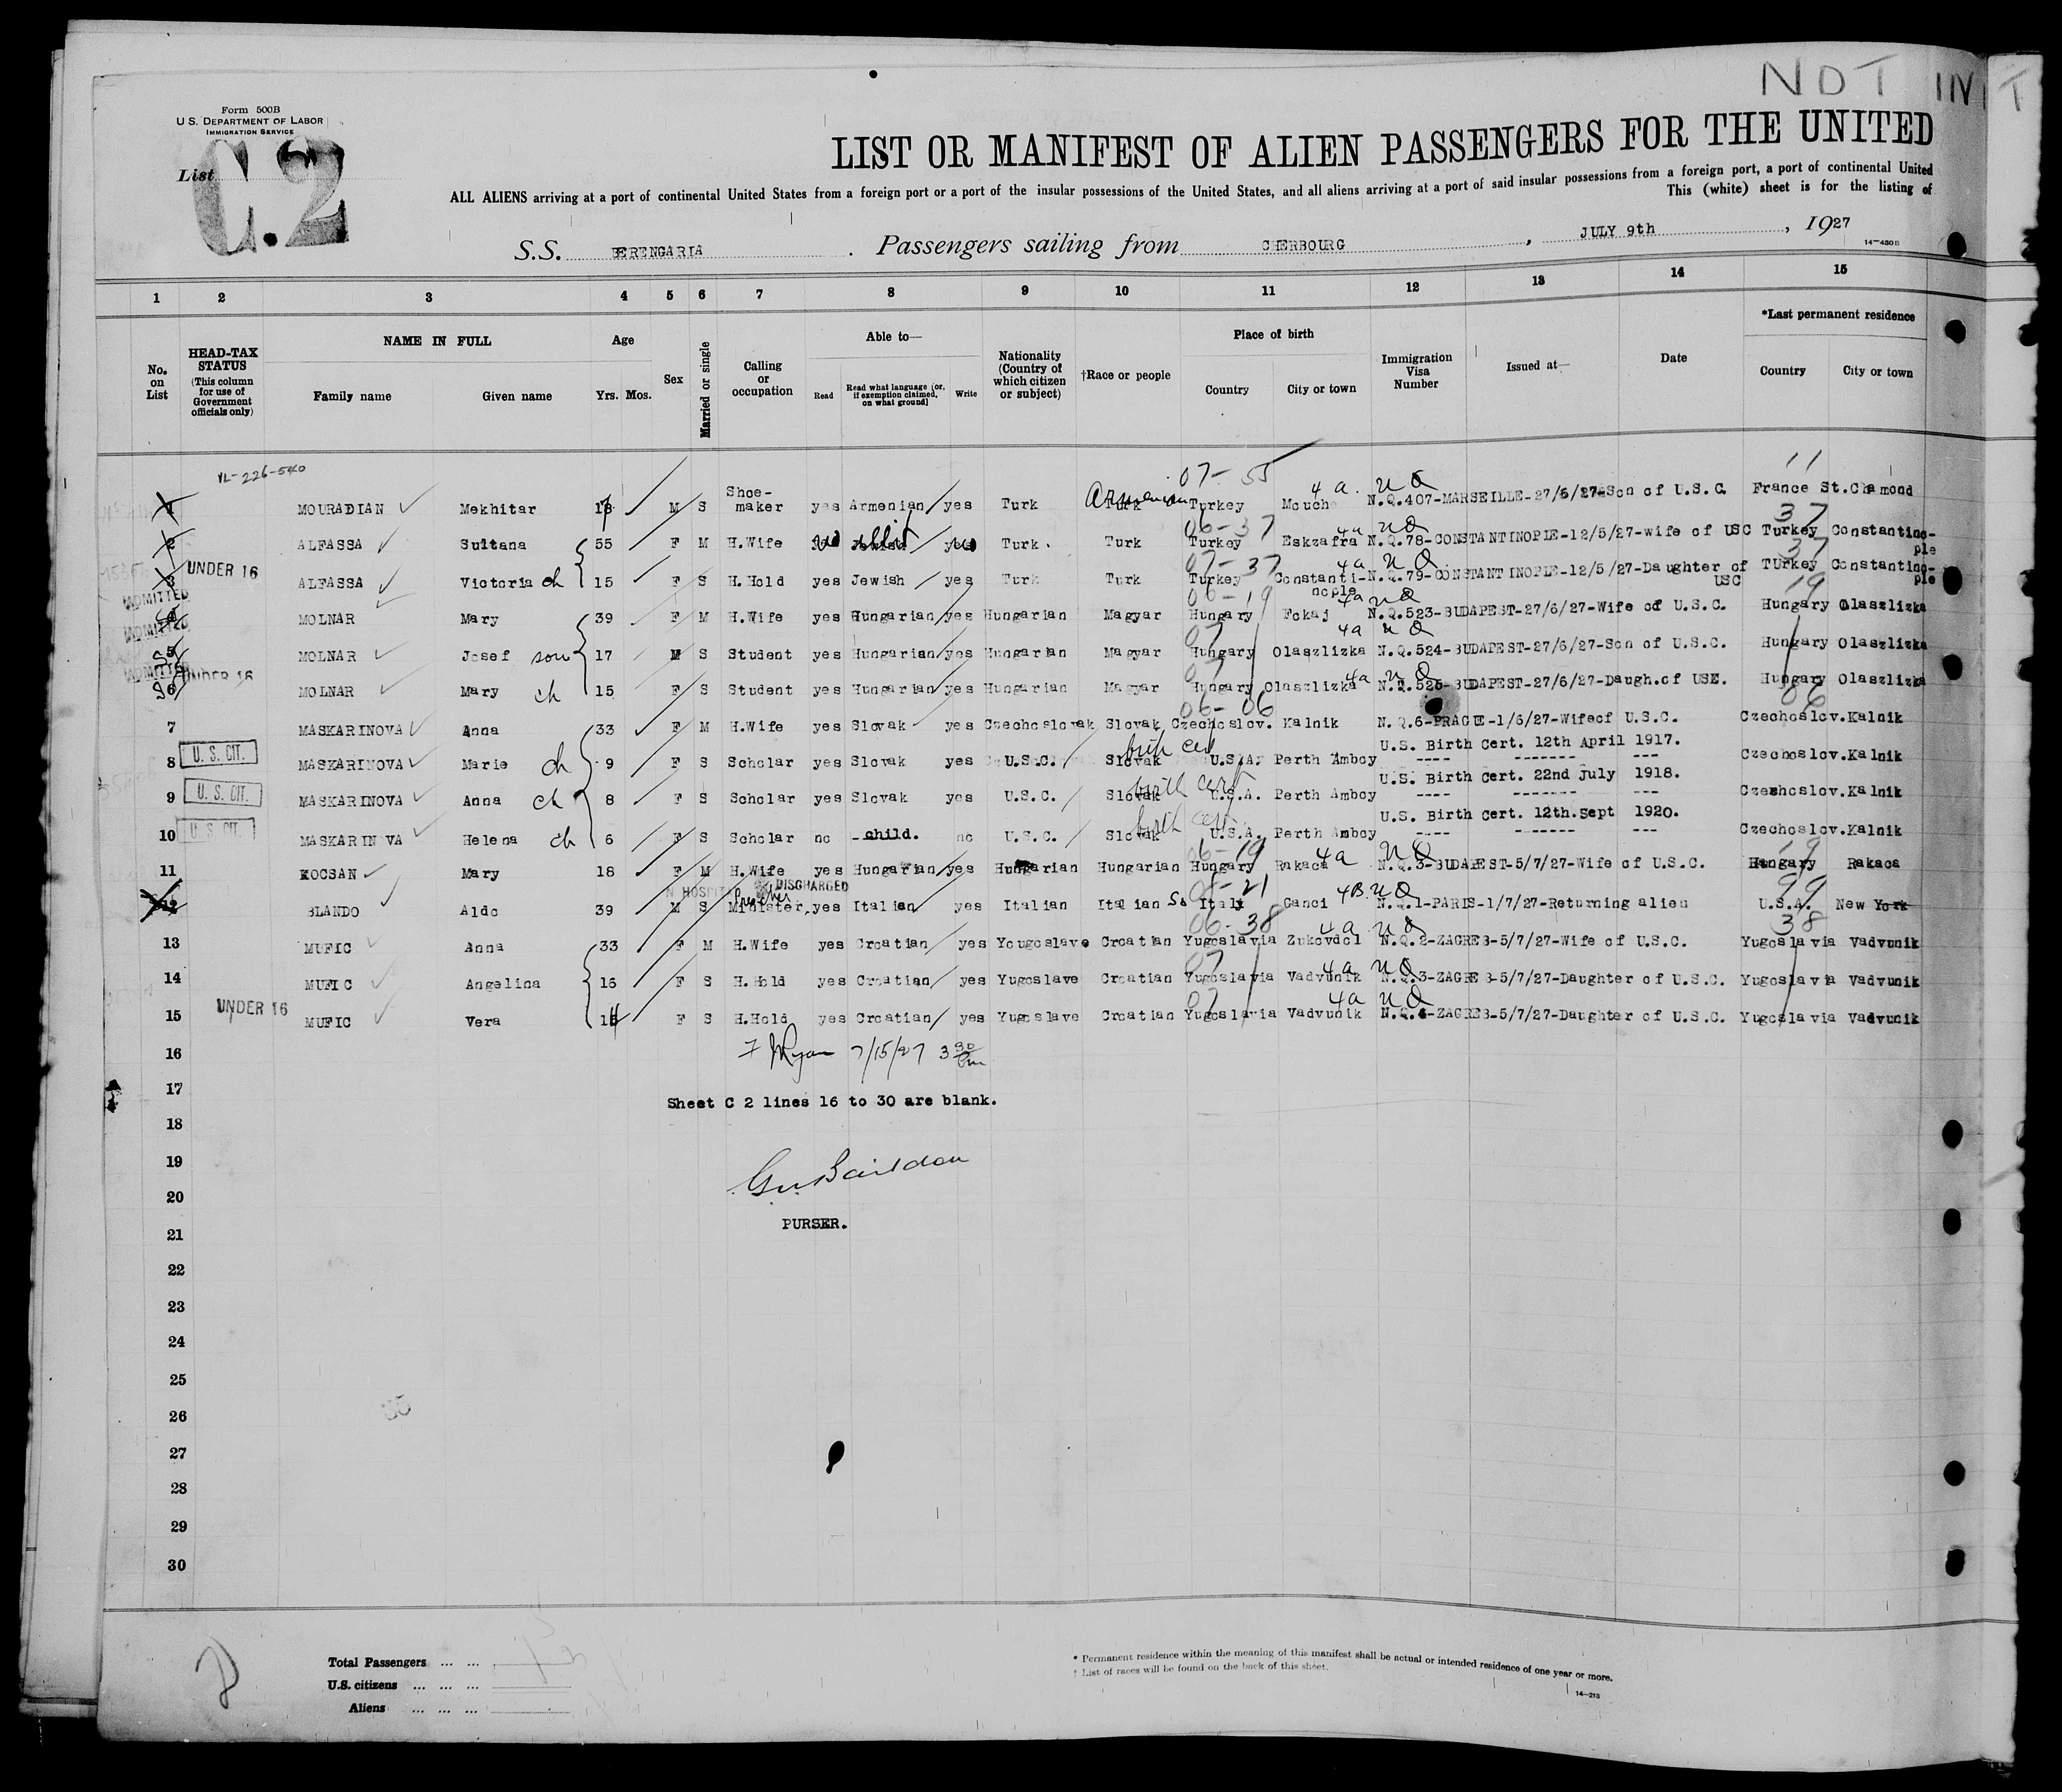 NOT INT
Form 500B
U.S. DEPARTMENT OF LABOR
IMMIGRATION SERVICE
List C.2
LIST OR MANIFEST OF ALIEN PASSENGERS FOR THE UNITED
ALL ALIENS arriving at a port of continental United States from a foreign port or a port of the insular possessions of the United States, and all aliens arriving at a port of said insular possessions from a foreign port, a port of continental United
This (white) sheet is for the listing of
S.S. BERENGARIA . Passengers sailing from CHERBOURG , JULY 9th , 1927
14—430B
1 2 3 4 5 6 7 8 9 10 11 12 13 14 15
No. on List
HEAD-TAX STATUS (This column for use of Government officials only)
NAME IN FULL
Family name Given name
Age
Yrs. Mos.
Sex
Married or single
Calling or occupation
Able to—
Read
Read what language (or, if exemption claimed, on what ground)
Write
Nationality (Country of which citizen or subject)
†Race or people
Place of birth
Country City or town
Immigration Visa Number
Issued at—
Date
*Last permanent residence
Country City or town
VL-226-540 07- 55 11
1 MOURADIAN Mekhitar M S Shoe-maker yes Armenian yes Turk Turk Armenian Turkey Mouche 4a NQ N.Q.407-MARSEILLE-27/6/27-Son of U.S.C. France St.Chamond
06-37 37
2 ALFASSA Sultana 55 F M H.Wife no yes no Turk Turk Turkey Eskzafra 4a NQ N.Q.78-CONSTANTINOPLE-12/5/27-wife of USC Turkey Constantino-ple
07-37 37
UNDER 16
3 ALFASSA Victoria ch 15 F S H.Hold yes Jewish yes Turk Turk Turkey Constanti-nople 4a NQ N.Q.79-CONSTANTINOPLE-12/5/27-Daughter of USC Turkey Constantino-ple
ADMITTED 06-19 19
4 MOLNAR Mary 39 F M H.Wife yes Hungarian yes Hungarian Magyar Hungary Fokaj 4a NQ N.Q.523-BUDAPEST-27/6/27-Wife of U.S.C. Hungary Olaszlizka
ADMITTED 07
5 MOLNAR Josef son 17 M S Student yes Hungarian yes Hungarian Magyar Hungary Olaszlizka 4a NQ N.Q.524-BUDAPEST-27/6/27-Son of U.S.C. Hungary Olaszlizka
ADMITTED UNDER 16 07
6 MOLNAR Mary ch 15 F S Student yes Hungarian yes Hungarian Magyar Hungary Olaszlizka 4a NQ N.Q.525-BUDAPEST-27/6/27-Daugh.of USE. Hungary Olaszlizka
06-06 06
7 MASKARINOVA Anna 33 F M H.Wife yes Slovak yes Czechoslovak Slovak Czechoslov. Kalnik N.Q.6-PRAGUE-1/6/27-Wifeof U.S.C. Czechoslov.Kalnik
U.S. CIT. birth cert U.S. Birth Cert. 12th April 1917.
8 MASKARINOVA Marie ch 9 F S Scholar yes Slovak yes U.S.C. Slovak U.S.A. Perth Amboy ---- ------- --- Czechoslov.Kalnik
U.S. CIT. birth cert U.S. Birth Cert. 22nd July 1918.
9 MASKARINOVA Anna ch 8 F S Scholar yes Slovak yes U.S.C. Slovak U.S.A. Perth Amboy ---- ------- --- Czechoslov.Kalnik
U.S. CIT. birth cert U.S. Birth Cert. 12th.Sept 1920.
10 MASKARIN VA Helena ch 6 F S Scholar no child. no U.S.C. Slovak U.S.A. Perth Amboy ---- ------ --- Czechoslov.Kalnik
06-19 19
11 KOCSAN Mary 18 F M H.Wife yes Hungarian yes Hungarian Hungarian Hungary Rakaca 4a NQ N.Q.3-BUDAPEST-5/7/27-Wife of U.S.C. Hungary Rakaca
IN HOSPITAL DISCHARGED 08-21 99
12 BLANDO Aldo 39 M S Minister Preacher yes Italian yes Italian Italian So Italy Ganci 4B NQ N.Q.1-PARIS-1/7/27-Returning alien U.S.A. New York
06-38 38
13 MUFIC Anna 33 F M H.Wife yes Croatian yes Yougoslave Croatian Yugoslavia Zukovdol 4a NQ N.Q.2-ZAGREB-5/7/27-Wife of U.S.C. Yugoslavia Vadvunik
07
14 MUFIC Angelina 16 F S H.Hold yes Croatian yes Yugoslave Croatian Yugoslavia Vadvunik 4a NQ N.Q.3-ZAGREB-5/7/27-Daughter of U.S.C. Yugoslavia Vadvunik
UNDER 16 07
15 MUFIC Vera F S H.Hold yes Croatian yes Yugoslave Croatian Yugoslavia Vadvunik 4a NQ N.Q.4-ZAGREB-5/7/27-Daughter of U.S.C. Yugoslavia Vadvunik
16 F Ryan 7/15/27 3 30 Pm
17 Sheet C 2 lines 16 to 30 are blank.
18
19
20
PURSER.
21
22
23
24
25
26
27
28
29
30
Total Passengers ... ...
U.S. citizens ... ... ...
Aliens ... ... ...
* Permanent residence within the meaning of this manifest shall be actual or intended residence of one year or more.
† List of races will be found on the back of this sheet.
14—213